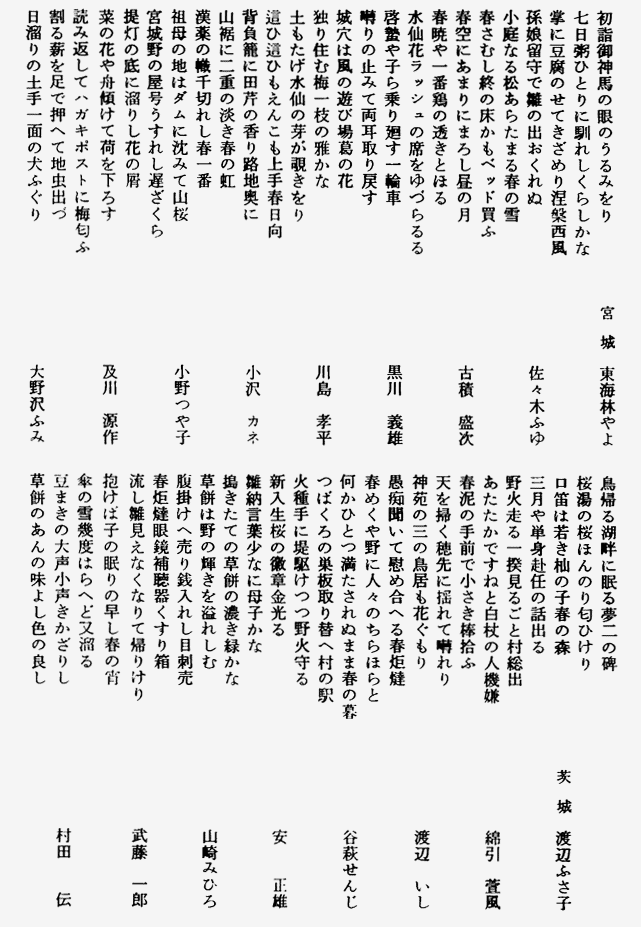 初詣御神馬の眼のうるみをり
宮城 東海林やよ
七日粥ひとりに馴れしくらしかな
掌に豆腐のせてきざめり涅槃西風
孫娘留守で雛の出おくれぬ
佐々木ふゆ
小庭なる松あらたまる春の雪
春さむし終の床かもベッド買ふ
春空にあまりにまろし昼の月
古積 盛次
春暁や一番鶏の透きとほる
水仙花ラッシュの席をゆづらるる
啓蟄や子ら乗り廻す一輪車
黒川 義雄
囀りの止みて両耳取り戻す
城穴は風の遊び場葛の花
独り住む梅一枝の雅かな
川島 孝平
土もたげ水仙の芽が覗きをり
這ひ這ひもえんこも上手春日向
背負籠に田芹の香り路地奥に
小沢 カネ
山裾に二重の淡き春の虹
漢薬の幟千切れし春一番
祖母の地はダムに沈みて山桜
小野つや子
宮城野の屋号うすれし遅ざくら
提灯の底に溜りし花の屑
菜の花や舟傾けて荷を下ろす
及川 源作
読み返してハガキポストに梅匂ふ
割る薪を足で押へて地虫出づ
日溜りの土手一面の犬ふぐり
大野沢ふみ
鳥帰る湖畔に眠る夢二の碑
桜湯の桜ほんのり匂ひけり
口笛は若き杣の子春の森
茨城 渡辺ふさ子
三月や単身赴任の話出る
野火走る一揆見るごと村総出
あたたかですねと白杖の人機嫌
綿引 萱風
春泥の手前で小さき棒拾ふ
天を掃く穂先に揺れて囀れり
神苑の三の鳥居も花ぐもり
渡辺 いし
愚痴聞いて慰め合へる春炬燵
春めくや野に人々のちらほらと
何かひとつ満たされぬまま春の暮
谷萩せんじ
つばくろの巣板取り替へ村の駅
火種手に堤駆けつつ野火守る
新入生桜の徽章金光る
安 正雄
雛納言葉少なに母子かな
搗きたての草餅の濃き緑かな
草餅は野の輝きを溢れしむ
山崎みひろ
腹掛けへ売り銭入れし目刺売
春炬燵眼鏡補聴器くすり箱
流し雛見えなくなりて帰りけり
武藤 一郎
抱けば子の眠りの早し春の宵
傘の雪幾度はらへど又溜る
豆まきの大声小声きかざりし
村田 伝
草餅のあんの味よし色の良し